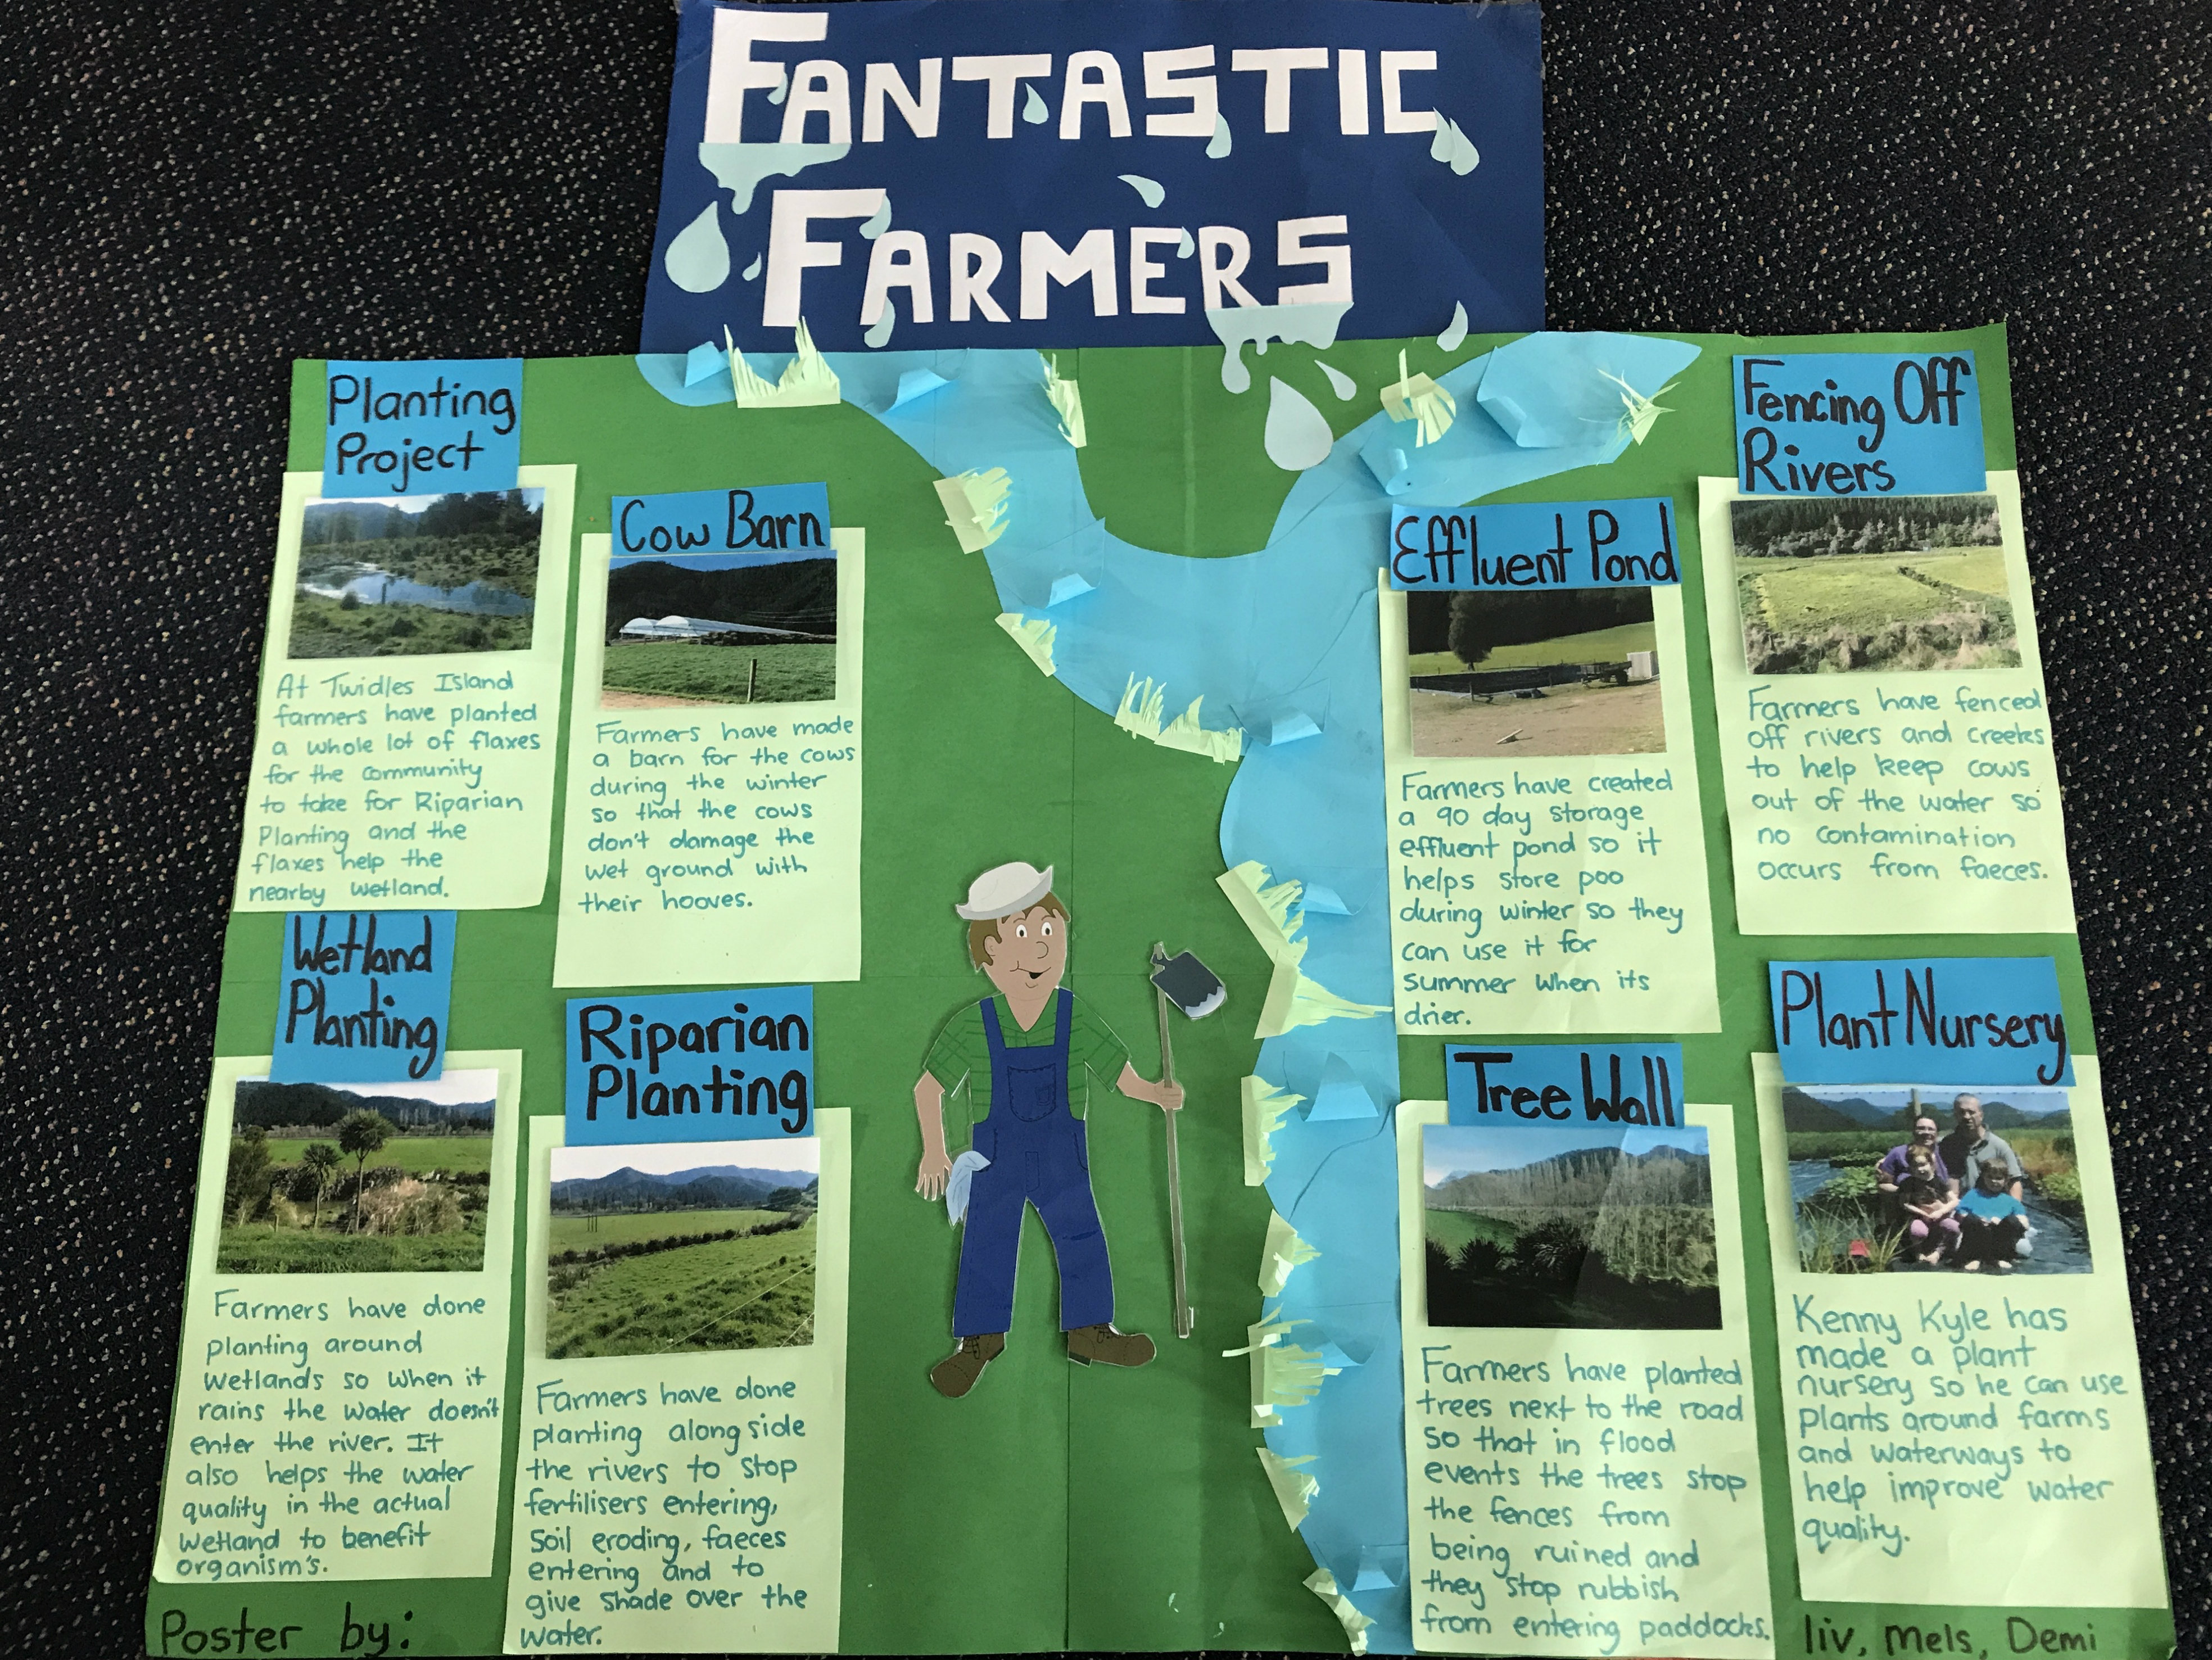 FANTASTIC
FARMERS
Planting
Project
At Twidles Island
farmers have planted
a whole lot of flaxes
for the community
to take for Riparian
Planting and the
flaxes help the
nearby wetland.
Cow Barn
Farmers have made
a barn for the cows
during the winter
so that the cows
don't damage the
wet ground with
their hooves.
Effluent Pond
Farmers have created
a 90 day storage
effluent pond so it
helps store poo
during winter so they
can use it for
summer when its
drier.
Fencing Off
Rivers
Farmers have fenced
off rivers and creeks
to help keep cows
out of the water so
no contamination
occurs from faeces.
Wetland
Planting
Farmers have done
planting around
wetlands so when it
rains the water doesn't
enter the river. It
also helps the water
quality in the actual
wetland to benefit
organism's.
Riparian
Planting
Farmers have done
planting along side
the rivers to stop
fertilisers entering,
soil eroding, faeces
entering and to
give shade over the
water.
Tree Wall
Farmers have planted
trees next to the road
so that in flood
events the trees stop
the fences from
being ruined and
they stop rubbish
from entering paddocks.
Plant Nursery
Kenny Kyle has
made a plant
nursery so he can use
plants around farms
and waterways to
help improve water
quality.
Poster by:
liv, mels, Demi